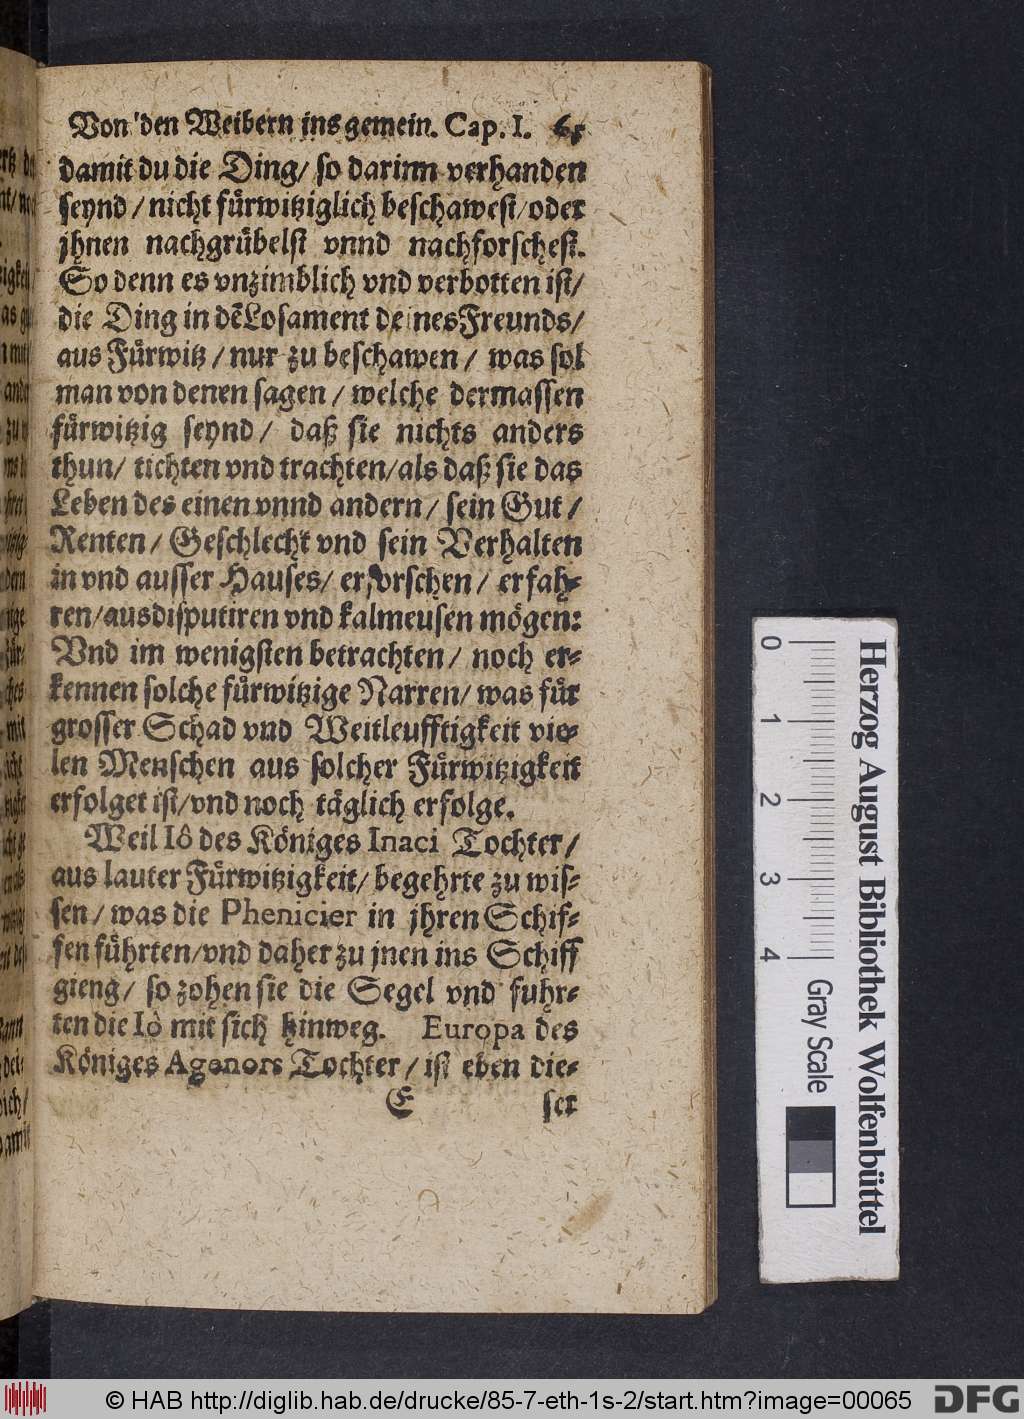 Von den Weibern ins gemein. Cap. I. 65
damit du die Ding/ so darinn verhanden
seynd/ nicht fürwitziglich beschawest/oder
jhnen nachgrübelst vnnd nachforschest.
So denn es vnzimblich vnd verbotten ist/
die Ding in dẽ Losament deines Freunds/
aus Fürwitz/ nur zu beschawen/ was sol
man von denen sagen/ welche dermassen
fürwitzig seynd/ daß sie nichts anders
thun/ tichten vnd trachten/als daß sie das
Leben des einen vnnd andern/ sein Gut/
Renten/ Geschlecht vnd sein Verhalten
in vnd ausser Hauses/ erforschen/ erfah-
ren/ausdisputiren vnd kalmeusen mögen:
Vnd im wenigsten betrachten/ noch er-
kennen solche fürwitzige Narren/ was für
grosser Schad vnd Weitleufftigkeit vie-
len Menschen aus solcher Fürwitzigkeit
erfolget ist/vnd noch täglich erfolge.
Weil Iô des Königes Inaci Tochter/
aus lauter Fürwitzigkeit/ begehrte zu wis-
sen/ was die Phenicier in jhren Schif-
fen führten/vnd daher zu jnen ins Schiff
gieng/ so zohen sie die Segel vnd fuhr-
ten die Iô mit sich hinweg. Europa des
Königes Agenors Tochter/ ist eben die-
E ser
0 1 2 3 4 Gray Scale
Herzog August Bibliothek Wolfenbüttel
© HAB http://diglib.hab.de/drucke/85-7-eth-1s-2/start.htm?image=00065 DFG